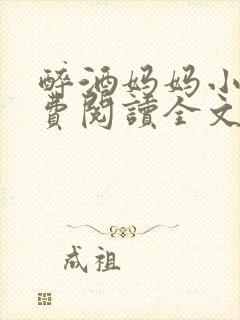 醉酒妈妈小
费閱讀全文
成祖